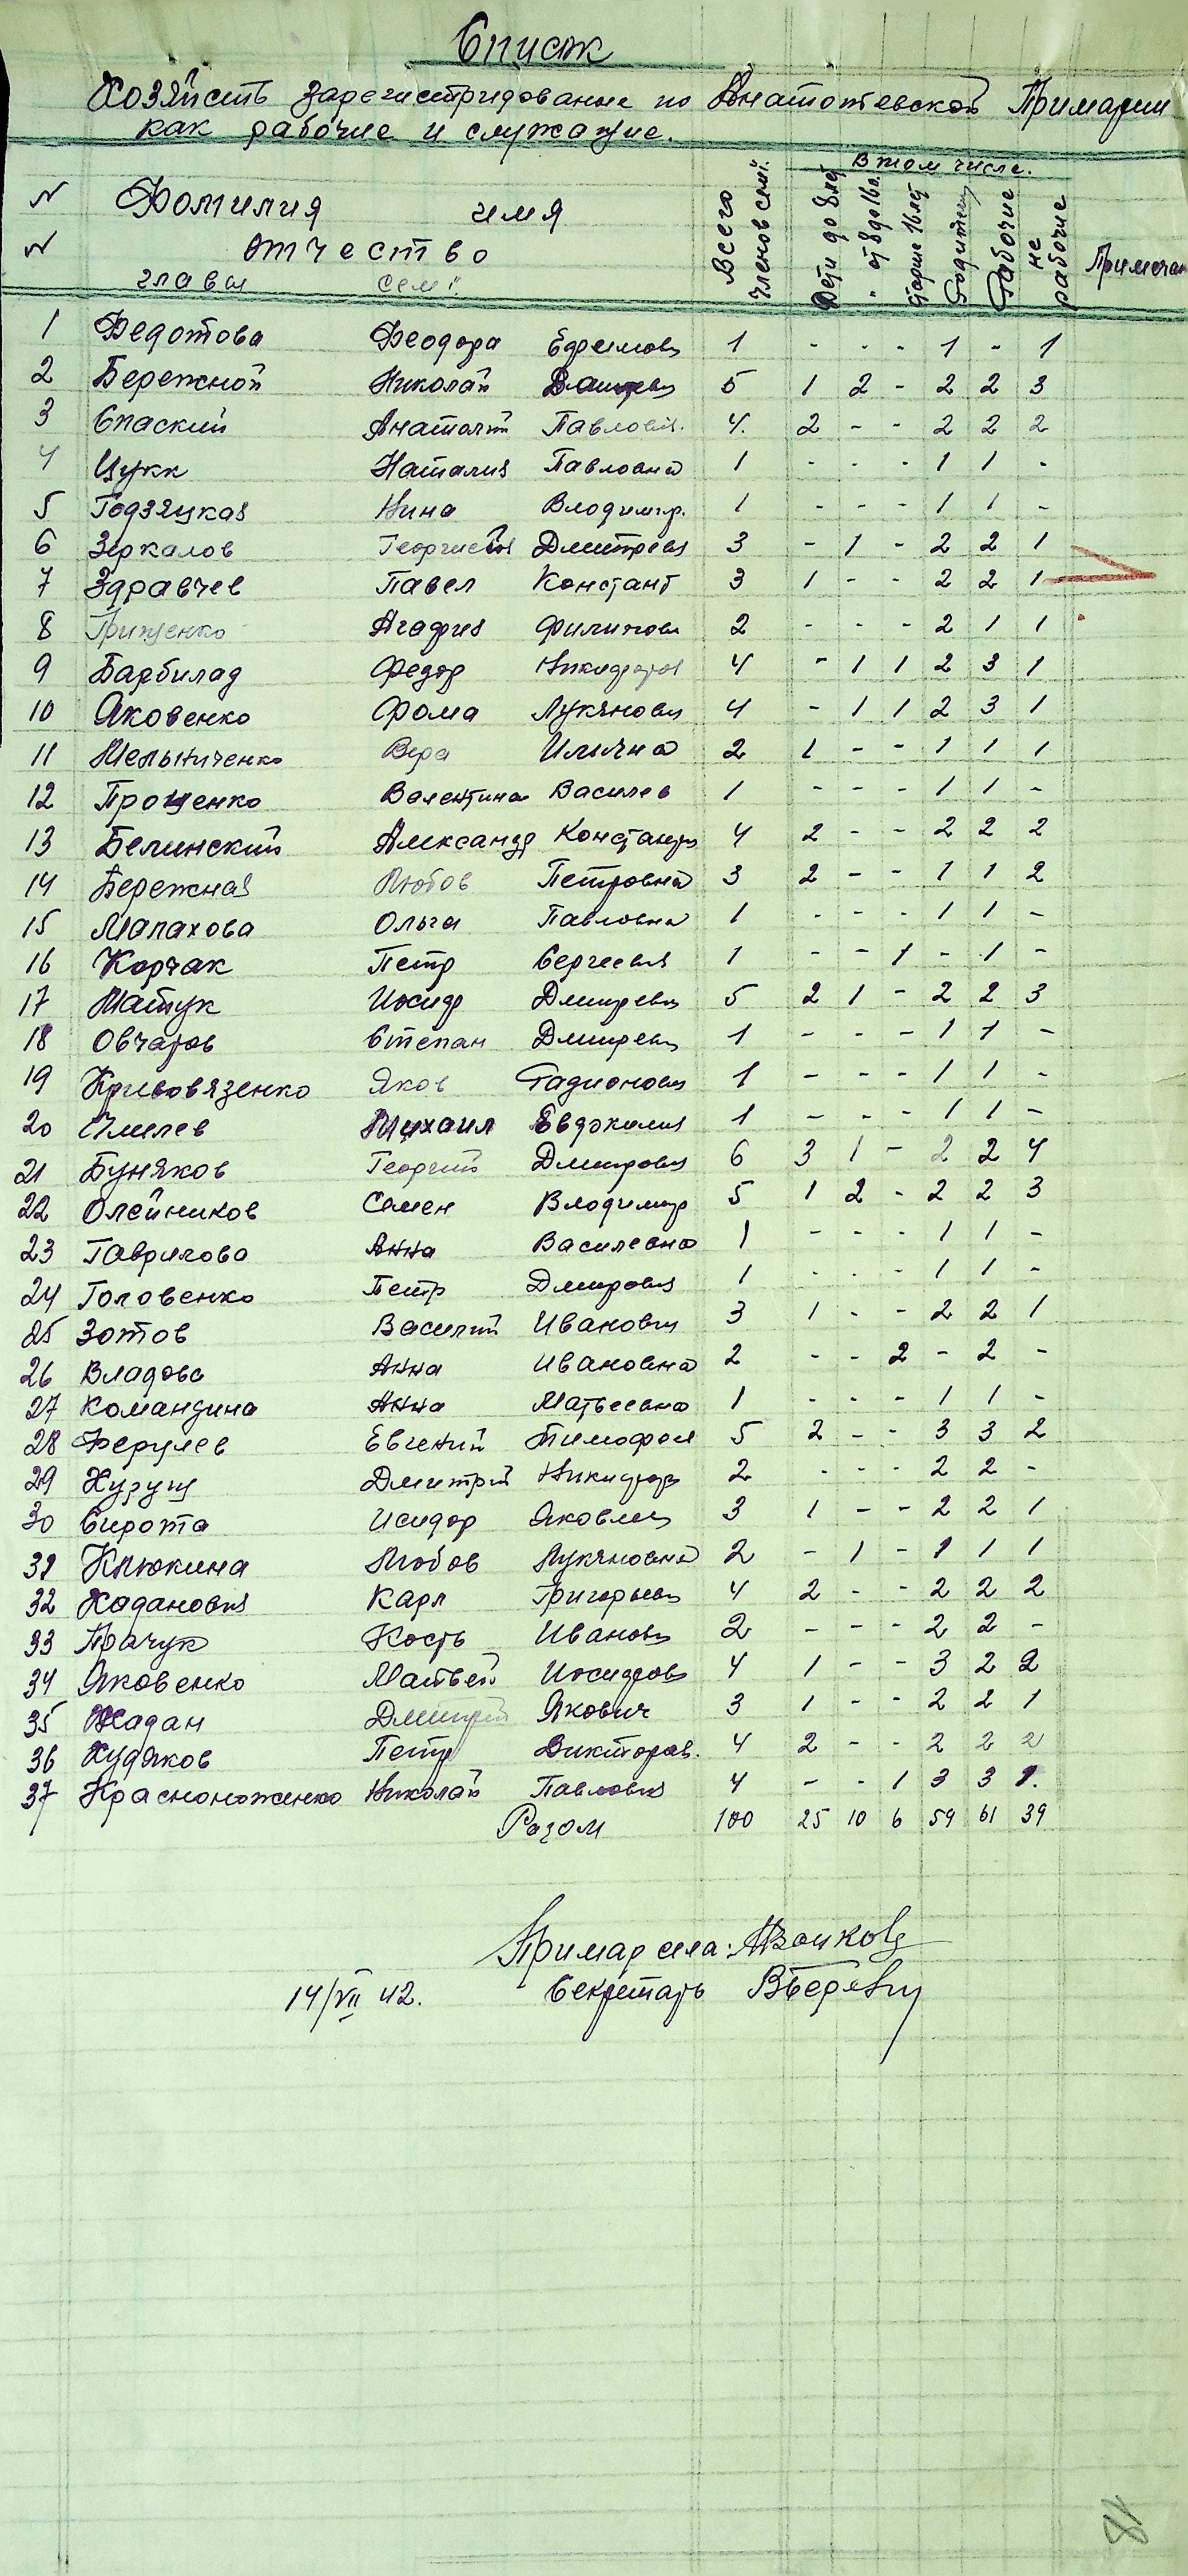 Список
Хозяйств зарегистрированые по Анатолевской Примарии
как рабочие и служащие.
В том числе.
N N Фомилия имя отчество главы семї Всего членов семї. Дети до 8 лет " от 8 до 16 л. Старше 16 лет Родителей Рабочие не рабочие Примечан
1 Федотова Феодора Ефимовн 1 - - - 1 - 1
2 Бережной Николай 5 1 2 - 2 2 3
3 Спаский Анатолий Павлович. 4. 2 - - 2 2 2
4 Цукк Наталия Павловна 1 - - - 1 1 -
5 Годзяцкая Нина Владимир. 1 - - - 1 1 -
6 Зеркалов Дмитревич 3 - 1 - 2 2 1
7 Здравчев Павел Констант 3 1 - - 2 2 1
8 Грищенко Агафия Филиповн 2 - - - 2 1 1
9 Барбилад Федор Никифоров 4 - 1 1 2 3 1
10 Яковенко Фома Лукянович 4 - 1 1 2 3 1
11 Мельниченко Вера Ильична 2 1 - - 1 1 1
12 Прощенко Валентина Василев 1 - - - 1 1 -
13 Белинский Александр Констант 4 2 - - 2 2 2
14 Бережная Любов Петровна 3 2 - - 1 1 2
15 Малахова Ольга Павловна 1 - - - 1 1 -
16 Корчак Петр Сергеевич 1 - - 1 - 1 -
17 Мащук Иосиф Дмитревич 5 2 1 - 2 2 3
18 Овчаров Степан Дмитревич 1 - - - 1 1 -
19 Кривовязенко Яков Радионович 1 - - - 1 1 -
20 Михаил Евдокимич 1 - - - 1 1 -
21 Буняков Георгий Дмитрович 6 3 1 - 2 2 4
22 Олейников Семен Владимир 5 1 2 - 2 2 3
23 Гаврилова Анна Василевна 1 - - - 1 1 -
24 Головенко Петр Дмитрович 1 - - - 1 1 -
25 Зотов Василий Иванович 3 1 - - 2 2 1
26 Владова Анна Ивановна 2 - - 2 - 2 -
27 Командина Анна Матвеевна 1 - - - 1 1 -
28 Ферулев Евгений Тимофее 5 2 - - 3 3 2
29 Дмитрий Никифор 2 - - - 2 2 -
30 Сирота Исидор Яковлев 3 1 - - 2 2 1
31 Клюкина Любов Лукяновна 2 - 1 - 1 1 1
32 Хаданович Карл Григорьев 4 2 - - 2 2 2
33 Прачук Кость Иванович 2 - - - 2 2 -
34 Яковенко Матвей Иосифов 4 1 - - 3 2 2
35 Жадан Дмитрий Якович 3 1 - - 2 2 1
36 Худяков Петр Викторов. 4 2 - - 2 2 2
37 Красноноженко Николай Павлович 4 - - 1 3 3 1.
Разом 100 25 10 6 59 61 39
Примар села:
14/VII 42. Секретарь